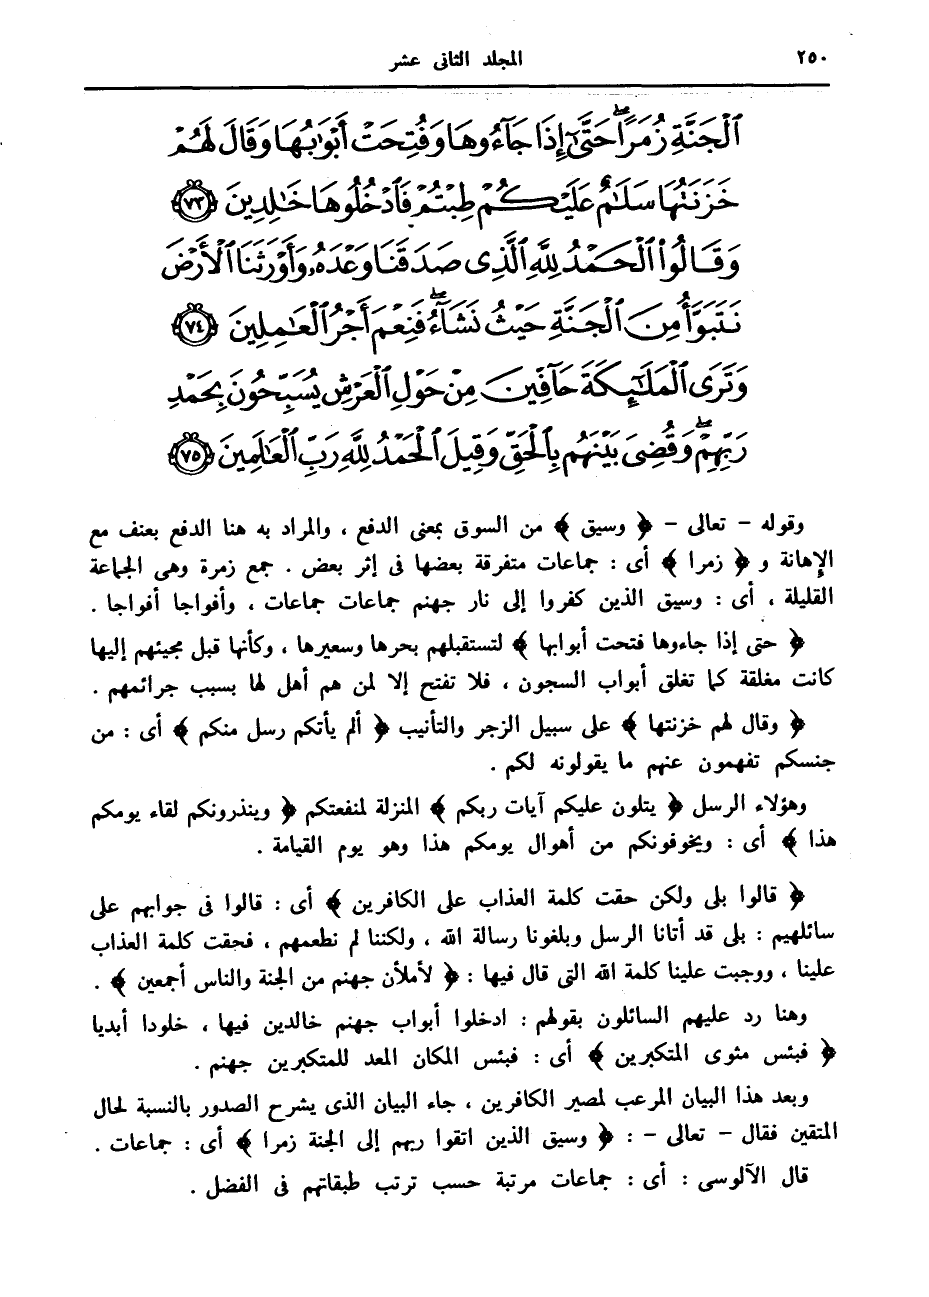 ٢٥٠ المجلد الثانى عشر
ٱلْجَنَّةِ زُمَرًا ۖ حَتَّىٰٓ إِذَا جَآءُوهَا وَفُتِحَتْ أَبْوَٰبُهَا وَقَالَ لَهُمْ
خَزَنَتُهَا سَلَـٰمٌ عَلَيْكُمْ طِبْتُمْ فَٱدْخُلُوهَا خَـٰلِدِينَ ﴿٧٣﴾
وَقَالُوا۟ ٱلْحَمْدُ لِلَّهِ ٱلَّذِى صَدَقَنَا وَعْدَهُۥ وَأَوْرَثَنَا ٱلْأَرْضَ
نَتَبَوَّأُ مِنَ ٱلْجَنَّةِ حَيْثُ نَشَآءُ ۖ فَنِعْمَ أَجْرُ ٱلْعَـٰمِلِينَ ﴿٧٤﴾
وَتَرَى ٱلْمَلَـٰٓئِكَةَ حَآفِّينَ مِنْ حَوْلِ ٱلْعَرْشِ يُسَبِّحُونَ بِحَمْدِ
رَبِّهِمْ ۖ وَقُضِىَ بَيْنَهُم بِٱلْحَقِّ وَقِيلَ ٱلْحَمْدُ لِلَّهِ رَبِّ ٱلْعَـٰلَمِينَ ﴿٧٥﴾
وقوله - تعالى - ﴿ وسيق ﴾ من السوق بمعنى الدفع ، والمراد به هنا الدفع بعنف مع
الإهانة و ﴿ زمرا ﴾ أى : جماعات متفرقة بعضها فى إثر بعض . جمع زمرة وهى الجماعة
القليلة ، أى : وسيق الذين كفروا إلى نار جهنم جماعات جماعات ، وأفواجا أفواجا .
﴿ حتى إذا جاءوها فتحت أبوابها ﴾ لتستقبلهم بحرها وسعيرها ، وكأنها قبل مجيئهم إليها
كانت مغلقة كما تغلق أبواب السجون ، فلا تفتح إلا لمن هم أهل لها بسبب جرائمهم .
﴿ وقال لهم خزنتها ﴾ على سبيل الزجر والتأنيب ﴿ ألم يأتكم رسل منكم ﴾ أى : من
جنسكم تفهمون عنهم ما يقولونه لكم .
وهؤلاء الرسل ﴿ يتلون عليكم آيات ربكم ﴾ المنزلة لمنفعتكم ﴿ وينذرونكم لقاء يومكم
هذا ﴾ أى : ويخوفونكم من أهوال يومكم هذا وهو يوم القيامة .
﴿ قالوا بلى ولكن حقت كلمة العذاب على الكافرين ﴾ أى : قالوا فى جوابهم على
سائليهم : بلى قد أتانا الرسل وبلغونا رسالة الله ، ولكننا لم نطعمهم ، فحقت كلمة العذاب
علينا ، ووجبت علينا كلمة الله التى قال فيها : ﴿ لأملأن جهنم من الجنة والناس أجمعين ﴾ .
وهنا رد عليهم السائلون بقولهم : ادخلوا أبواب جهنم خالدين فيها ، خلودا أبديا
﴿ فبئس مثوى المتكبرين ﴾ أى : فبئس المكان المعد للمتكبرين جهنم .
وبعد هذا البيان المرعب لمصير الكافرين ، جاء البيان الذى يشرح الصدور بالنسبة لحال
المتقين فقال - تعالى - : ﴿ وسيق الذين اتقوا ربهم إلى الجنة زمرا ﴾ أى : جماعات .
قال الآلوسى : أى : جماعات مرتبة حسب ترتب طبقاتهم فى الفضل .